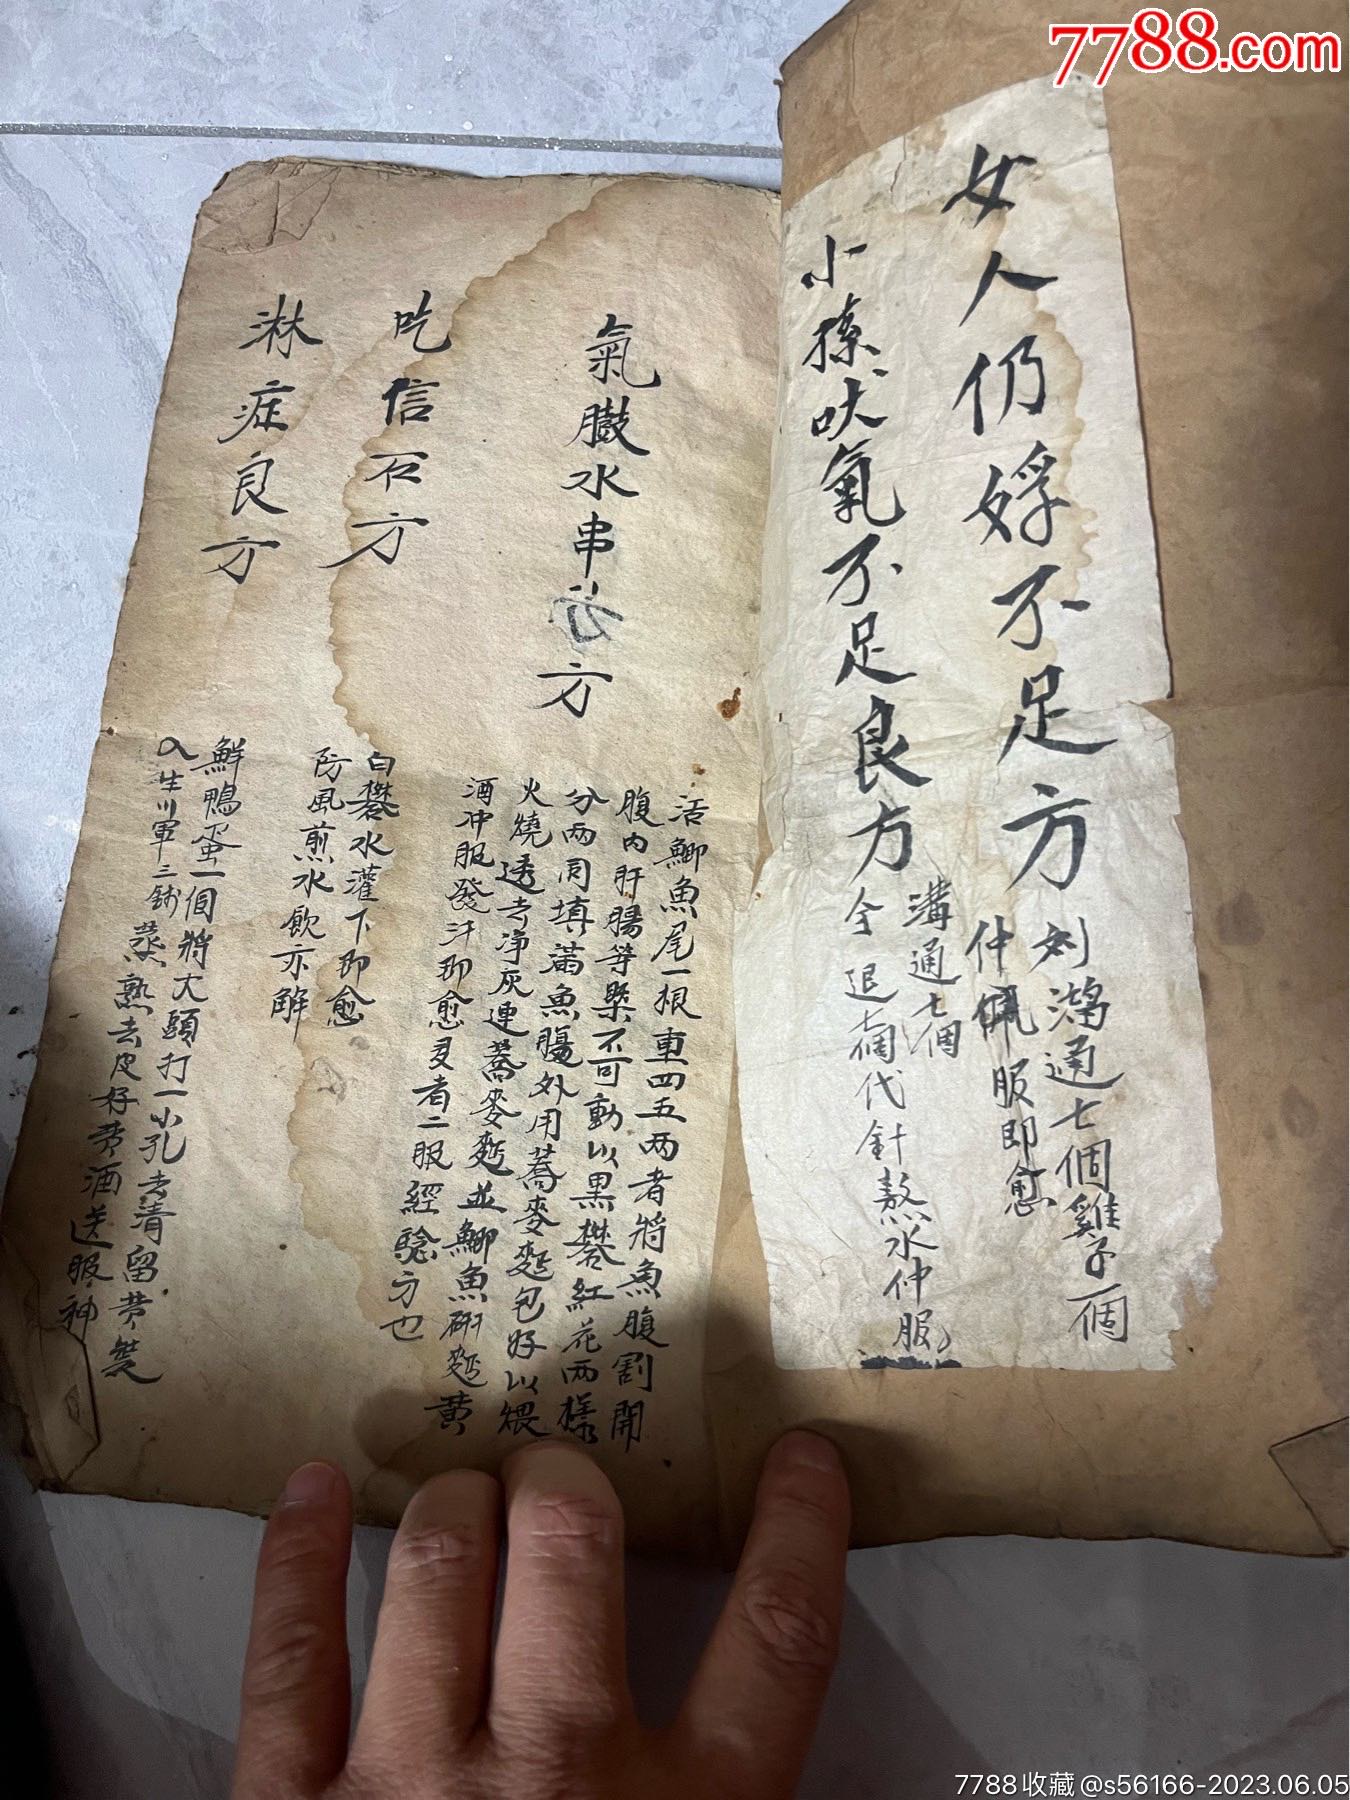 7788.com
女人仍孵不足方
刘鸿通七個雞子一個
仲 服即愈
小孫吠氣不足良方
溝通七個
全退七個代針熬水仲服
氣臌水串方方
活鯽魚尾一根車四五两者將魚腹割開
腹内肝腸等 不可動以黑礬紅花两樣
分两同填满魚腸外用蕎麥麵包好以煨
火燒透去净灰連蕎麥麵並鯽魚研麵黄
酒冲服發汗即愈 者二服經驗方也
吃信石方
白礬水灌下即愈
防風煎水飲亦解
淋症良方
鮮鴨蛋一個將大頭打一小孔去清留黄 
入生川軍三錢蒸熟去皮好黄酒送服神
7788收藏@s56166-2023.06.05